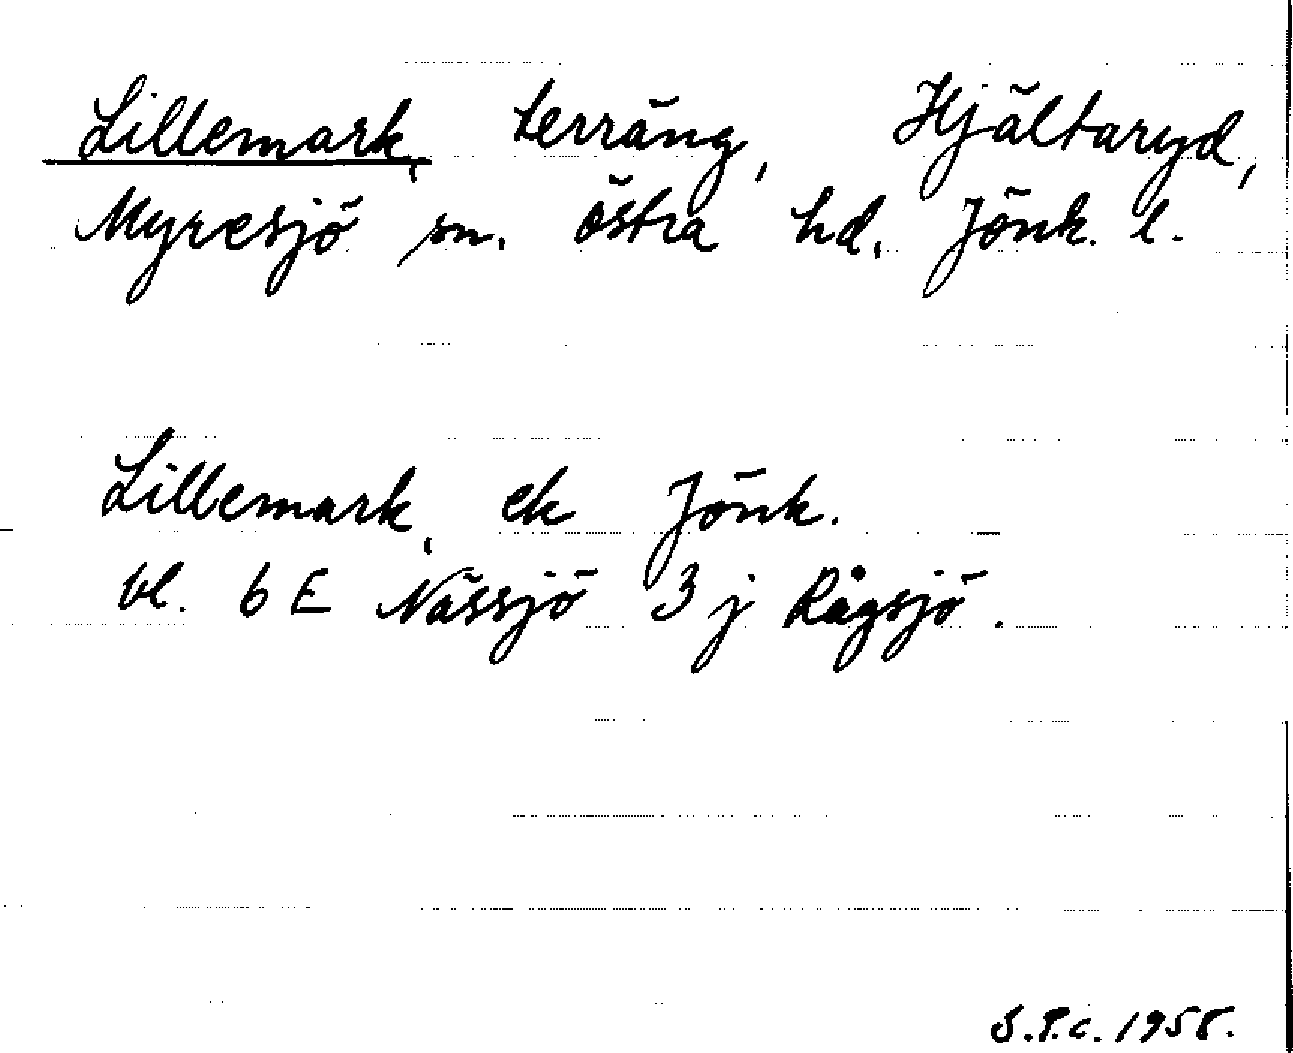 Lillemark, terräng, Hjältaryd,
Myresjö sn. östra hd. Jönk. l.
Lillemark, ek Jönk.
bl. 6 E Nässjö 3 j Rågsjö.
S.P.C. 1958.